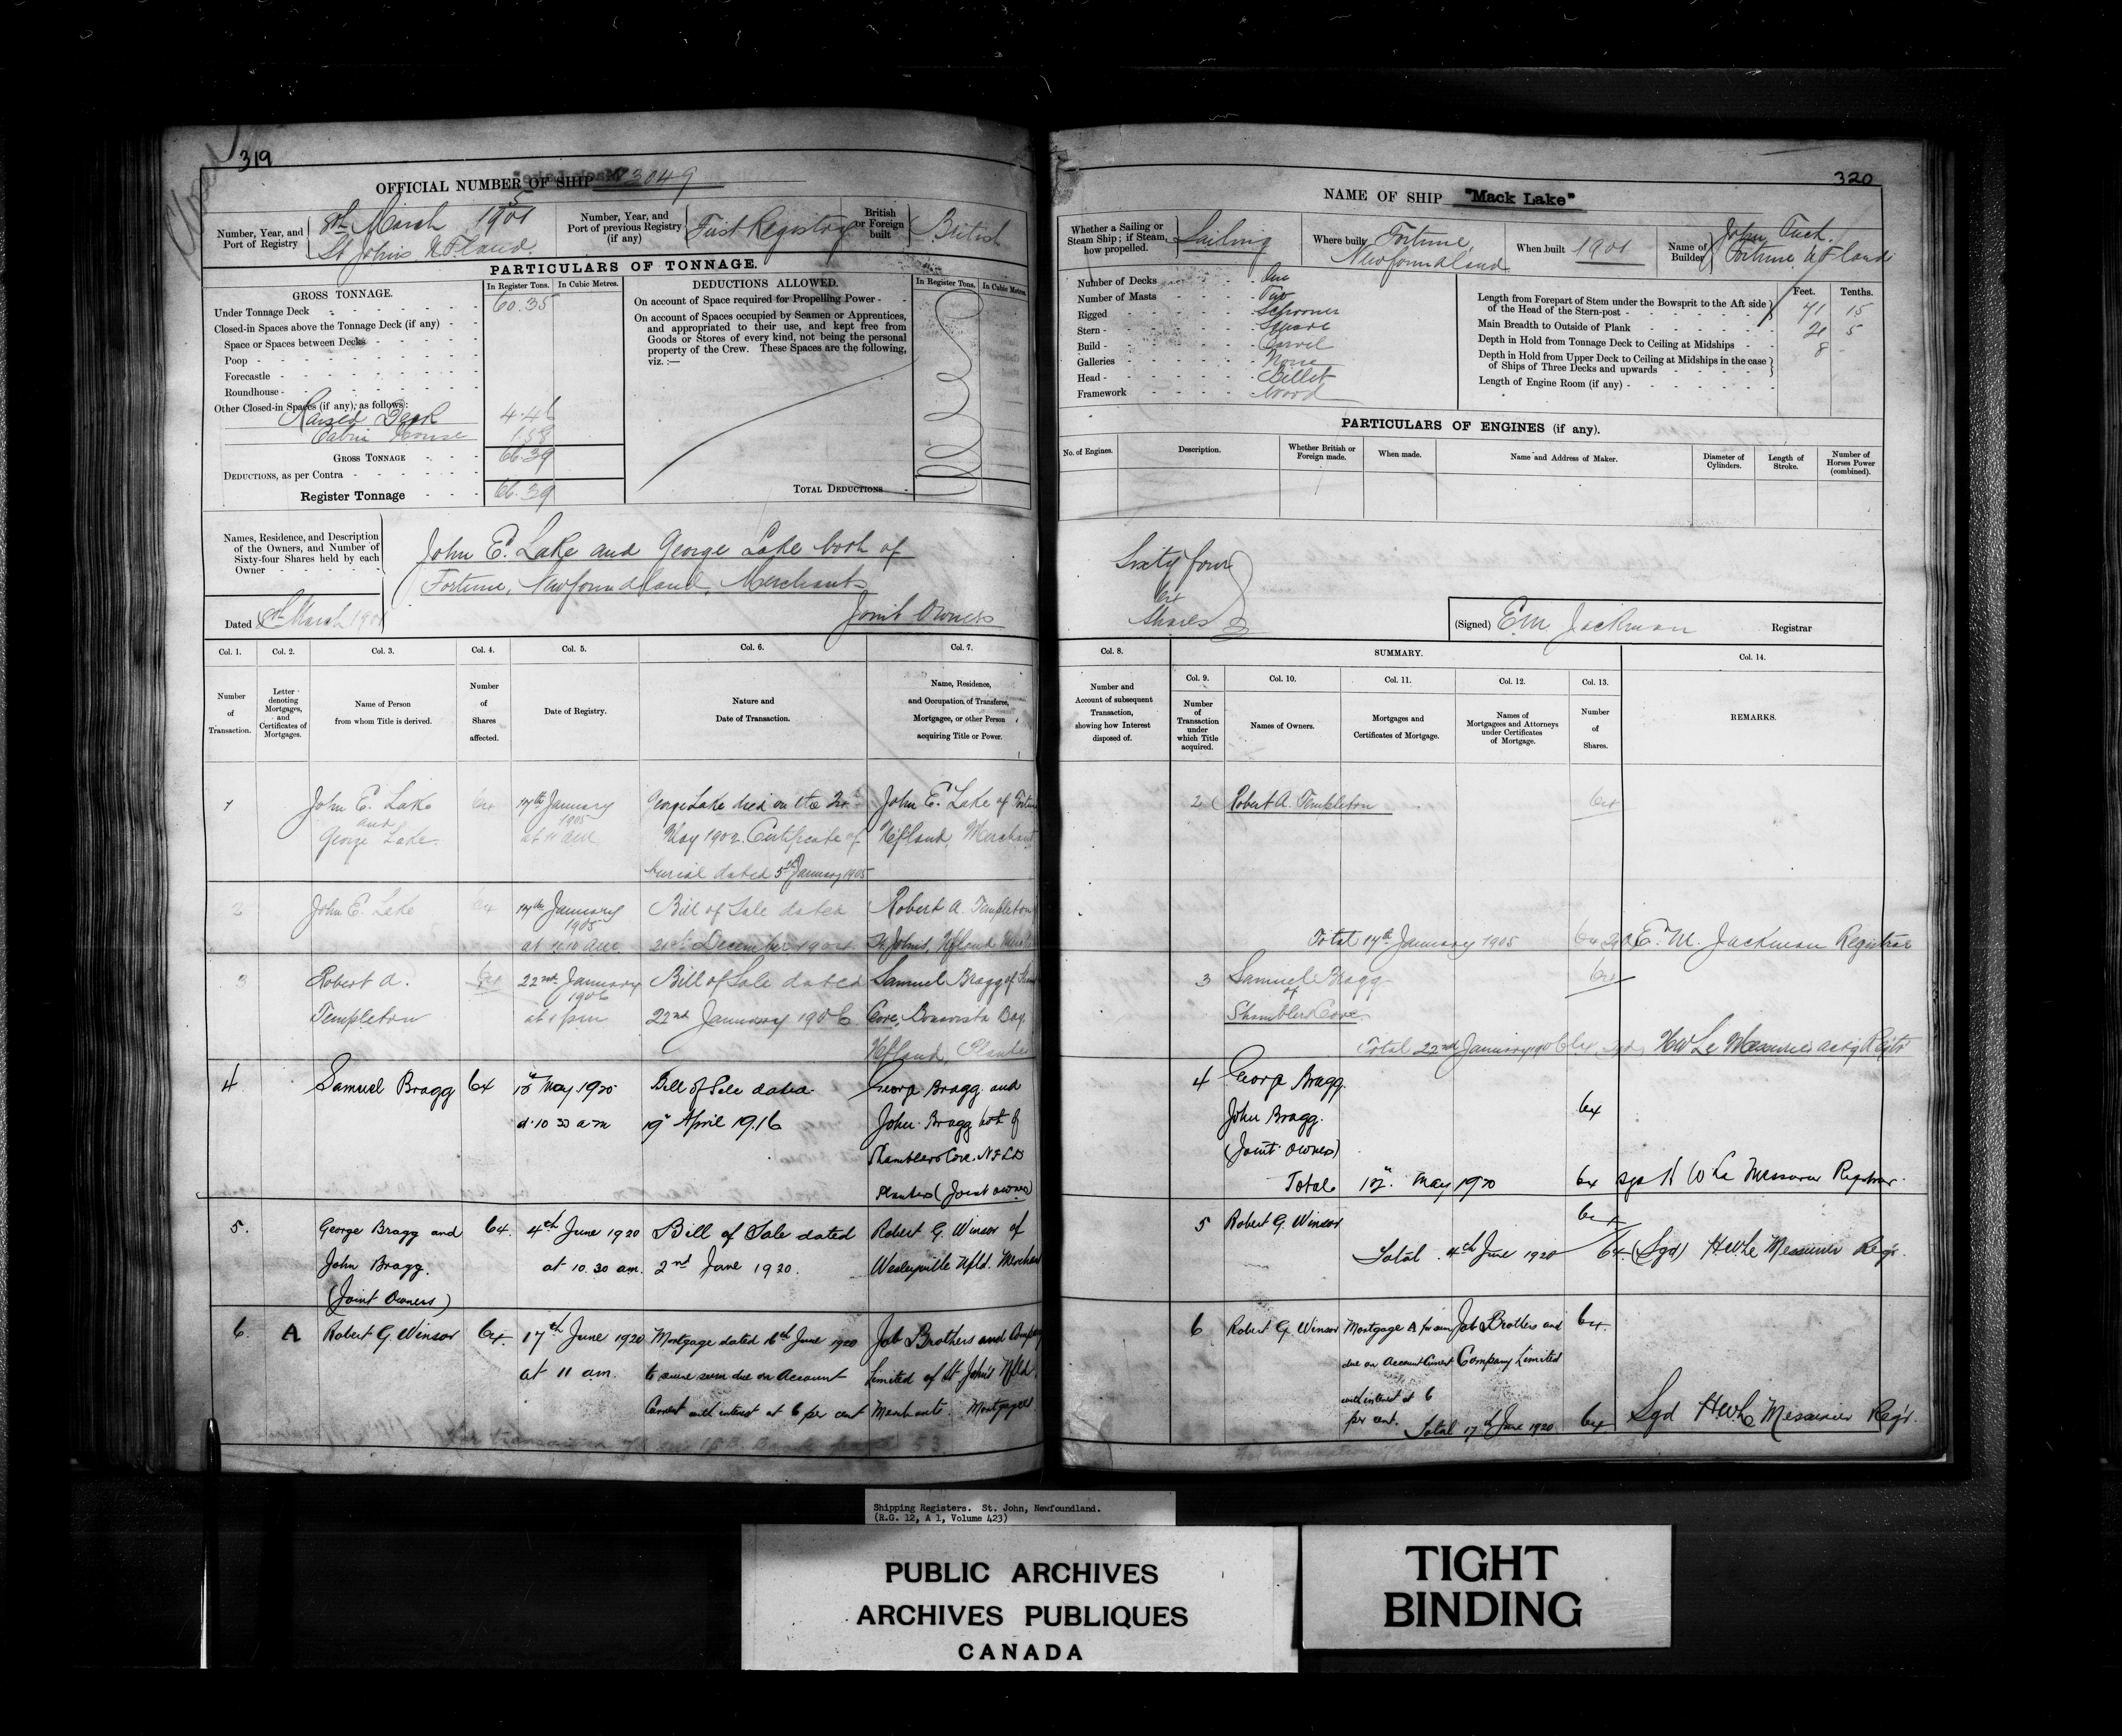 319
OFFICIAL NUMBER OF SHIP 3049
Number, Year, and Port of Registry
8th March 1901
St Johns N F.land.
Number, Year, and Port of previous Registry (if any)
First Registry
British or Foreign built
British
PARTICULARS OF TONNAGE.
GROSS TONNAGE.
In Register Tons. In Cubic Metres.
Under Tonnage Deck 60.35
Closed-in Spaces above the Tonnage Deck (if any)
Space or Spaces between Decks
Poop
Forecastle
Roundhouse
Other Closed-in Spaces (if any), as follows:
Raised Deck 4.46
Cabin House 1.58
GROSS TONNAGE 66.39
DEDUCTIONS, as per Contra
Register Tonnage 66.39
DEDUCTIONS ALLOWED.
In Register Tons. In Cubic Metres.
On account of Space required for Propelling Power
On account of Spaces occupied by Seamen or Apprentices,
and appropriated to their use, and kept free from
Goods or Stores of every kind, not being the personal
property of the Crew. These Spaces are the following,
viz. :—
TOTAL DEDUCTIONS
Names, Residence, and Description
of the Owners, and Number of
Sixty-four Shares held by each
Owner
John E. Lake and George Lake both of
Fortune, Newfoundland, Merchants
Joint Owners
Dated 8th March 1901
Col. 1. Col. 2. Col. 3. Col. 4. Col. 5. Col. 6. Col. 7.
Number of Transaction.
Letter denoting Mortgages, and Certificates of Mortgages.
Name of Person from whom Title is derived.
Number of Shares affected.
Date of Registry.
Nature and Date of Transaction.
Name, Residence, and Occupation of Transferee, Mortgagee, or other Person acquiring Title or Power.
1 John E. Lake 64 17th January George Lake died on the John E. Lake of Fortune
and 1905
George Lake. at 11 am May 1902. Certificate of Nfland, Merchant
burial dated 5th January 1905
2 John E. Lake 64 17th January Bill of Sale dated Robert A. Templeton
1905
at 11.10 am 21st December 1904 St Johns, Nfland
3 Robert A. 64 22nd January Bill of Sale dated Samuel Bragg of
1906
Templeton at 1 pm 22nd January 1906 Cove, Bonavista Bay
Nfland, Planter
4 Samuel Bragg 64 May 1920 Bill of Sale dated George Bragg and
at 10 30 a m 19th April 1916 John Bragg both of
Shamblers Cove. NFLD
Planters (Joint owners)
5. George Bragg and 64. 4th June 1920 Bill of Sale dated Robert G. Winsor of
John Bragg. at 10.30 am. 2nd June 1920. Wesleyville Nfld. Merchant
(Joint Owners)
6. A Robert G. Winsor 64 17th June 1920 Mortgage dated 16th June 1920 Job Brothers and Company
at 11 am. to secure sum due on Account Limited of St John's Nfld.
Current with interest at 6 per cent Merchants. Mortgagees
53
320
NAME OF SHIP "Mack Lake"
Whether a Sailing or Steam Ship; if Steam, how propelled.
Sailing
Where built
Fortune,
Newfoundland
When built 1901
Name of Builder
John Tuck.
Fortune N F land
Number of Decks One
Number of Masts Two
Rigged Schooner
Stern Square
Build Carvel
Galleries None
Head Billet
Framework Wood
Feet. Tenths.
Length from Forepart of Stem under the Bowsprit to the Aft side
of the Head of the Stern-post 71 15
Main Breadth to Outside of Plank 21 5
Depth in Hold from Tonnage Deck to Ceiling at Midships 8 -
Depth in Hold from Upper Deck to Ceiling at Midships in the case
of Ships of Three Decks and upwards
Length of Engine Room (if any)
PARTICULARS OF ENGINES (if any).
No. of Engines.
Description.
Whether British or Foreign made.
When made.
Name and Address of Maker.
Diameter of Cylinders.
Length of Stroke.
Number of Horses Power (combined).
Sixty four
64
Shares
(Signed) E M Jackman Registrar
Col. 8. SUMMARY. Col. 14.
Col. 9. Col. 10. Col. 11. Col. 12. Col. 13.
Number and Account of subsequent Transaction, showing how Interest disposed of.
Number of Transaction under which Title acquired.
Names of Owners.
Mortgages and Certificates of Mortgage.
Names of Mortgagees and Attorneys under Certificates of Mortgage.
Number of Shares.
REMARKS.
2 Robert A. Templeton 64
Total 17th January 1905 64 sgd E. M. Jackman Registrar
3 Samuel Bragg 64
of
Shamblers Cove.
Total 22nd January 1906 64 sgd H W Le Messurier actg Regtr
4 George Bragg.
John Bragg. 64
(Joint Owners)
Total May 1920 64 sgd H W Le Messurier Registrar.
5 Robert G. Winsor 64
Total 4th June 1920 64 (Sgd) H W Le Messurier Regr.
6 Robert G. Winsor Mortgage A for sum Job Brothers and 64.
due on Account Current Company Limited
with interest at 6
per cent.
Total 17th June 1920 64 Sgd H W Le Messurier Regr.
Shipping Registers. St. John, Newfoundland.
(R.G. 12, A 1, Volume 423)
PUBLIC ARCHIVES
ARCHIVES PUBLIQUES
CANADA
TIGHT
BINDING